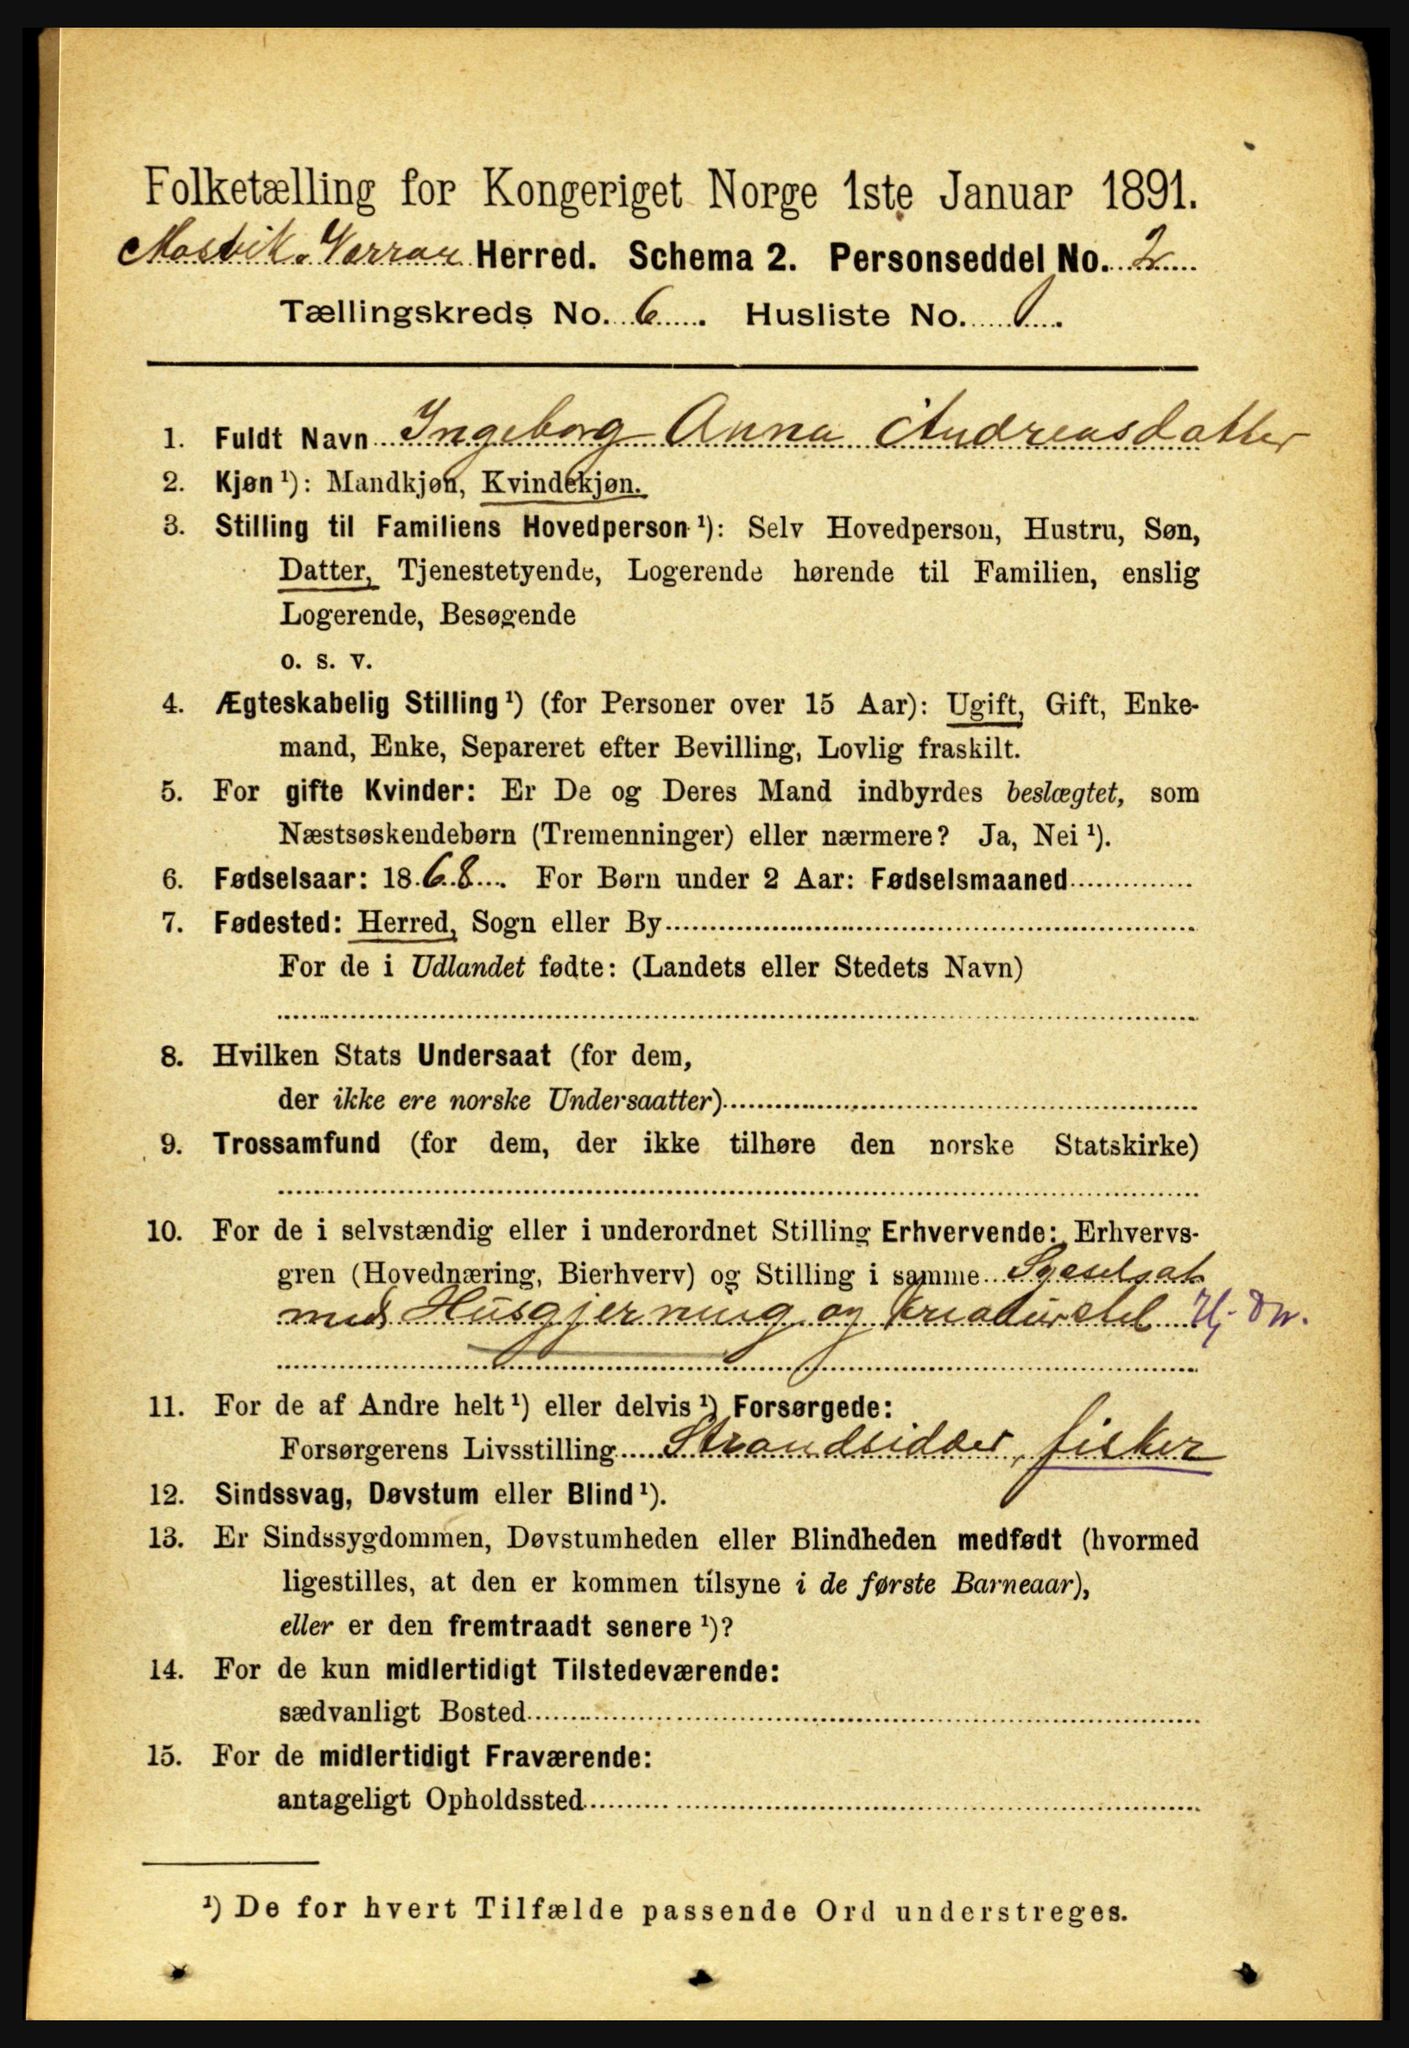 Folketælling for Kongeriget Norge 1ste Januar 1891.
Mosvik. Verran Herred. Schema 2. Personseddel No. 2
Tællingskreds No. 6. Husliste No. 1.
1. Fuldt Navn Ingeborg Anna Andreasdatter
2. Kjøn ¹): Mandkjøn, Kvindekjøn.
3. Stilling til Familiens Hovedperson ¹): Selv Hovedperson, Hustru, Søn,
Datter, Tjenestetyende, Logerende hørende til Familien, enslig
Logerende, Besøgende
o. s. v.
4. Ægteskabelig Stilling ¹) (for Personer over 15 Aar): Ugift, Gift, Enke-
mand, Enke, Separeret efter Bevilling, Lovlig fraskilt.
5. For gifte Kvinder: Er De og Deres Mand indbyrdes beslægtet, som
Næstsøskendebørn (Tremenninger) eller nærmere? Ja, Nei ¹).
6. Fødselsaar: 1868. For Børn under 2 Aar: Fødselsmaaned
7. Fødested: Herred, Sogn eller By
For de i Udlandet fødte: (Landets eller Stedets Navn)
8. Hvilken Stats Undersaat (for dem,
der ikke ere norske Undersaatter)
9. Trossamfund (for dem, der ikke tilhøre den norske Statskirke)
10. For de i selvstændig eller i underordnet Stilling Erhvervende: Erhvervs-
gren (Hovednæring, Bierhverv) og Stilling i samme Sysselsat
med Husgjerning og Kreaturstel Hj. Dtr.
11. For de af Andre helt ¹) eller delvis ¹) Forsørgede:
Forsørgerens Livsstilling Strandsidder, fisker
12. Sindssvag, Døvstum eller Blind ¹).
13. Er Sindssygdommen, Døvstumheden eller Blindheden medfødt (hvormed
ligestilles, at den er kommen tilsyne i de første Barneaar),
eller er den fremtraadt senere ¹)?
14. For de kun midlertidigt Tilstedeværende:
sædvanligt Bosted
15. For de midlertidigt Fraværende:
antageligt Opholdssted
¹) De for hvert Tilfælde passende Ord understreges.